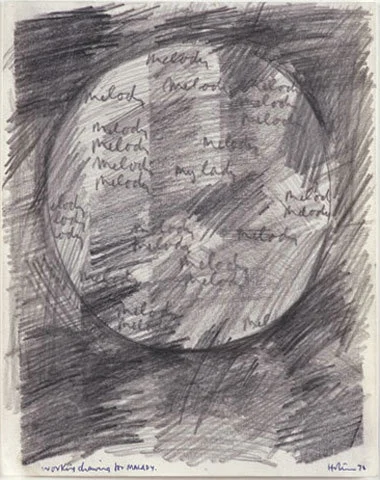 melody
melody melody
melody melody
melody
melody
melody melody
melody
my lady
melody
melod
elody melody
lody
melody melody
lody
melody
melody
melod
melody
melody
mel
working drawing for MALADY.
Hotere 76